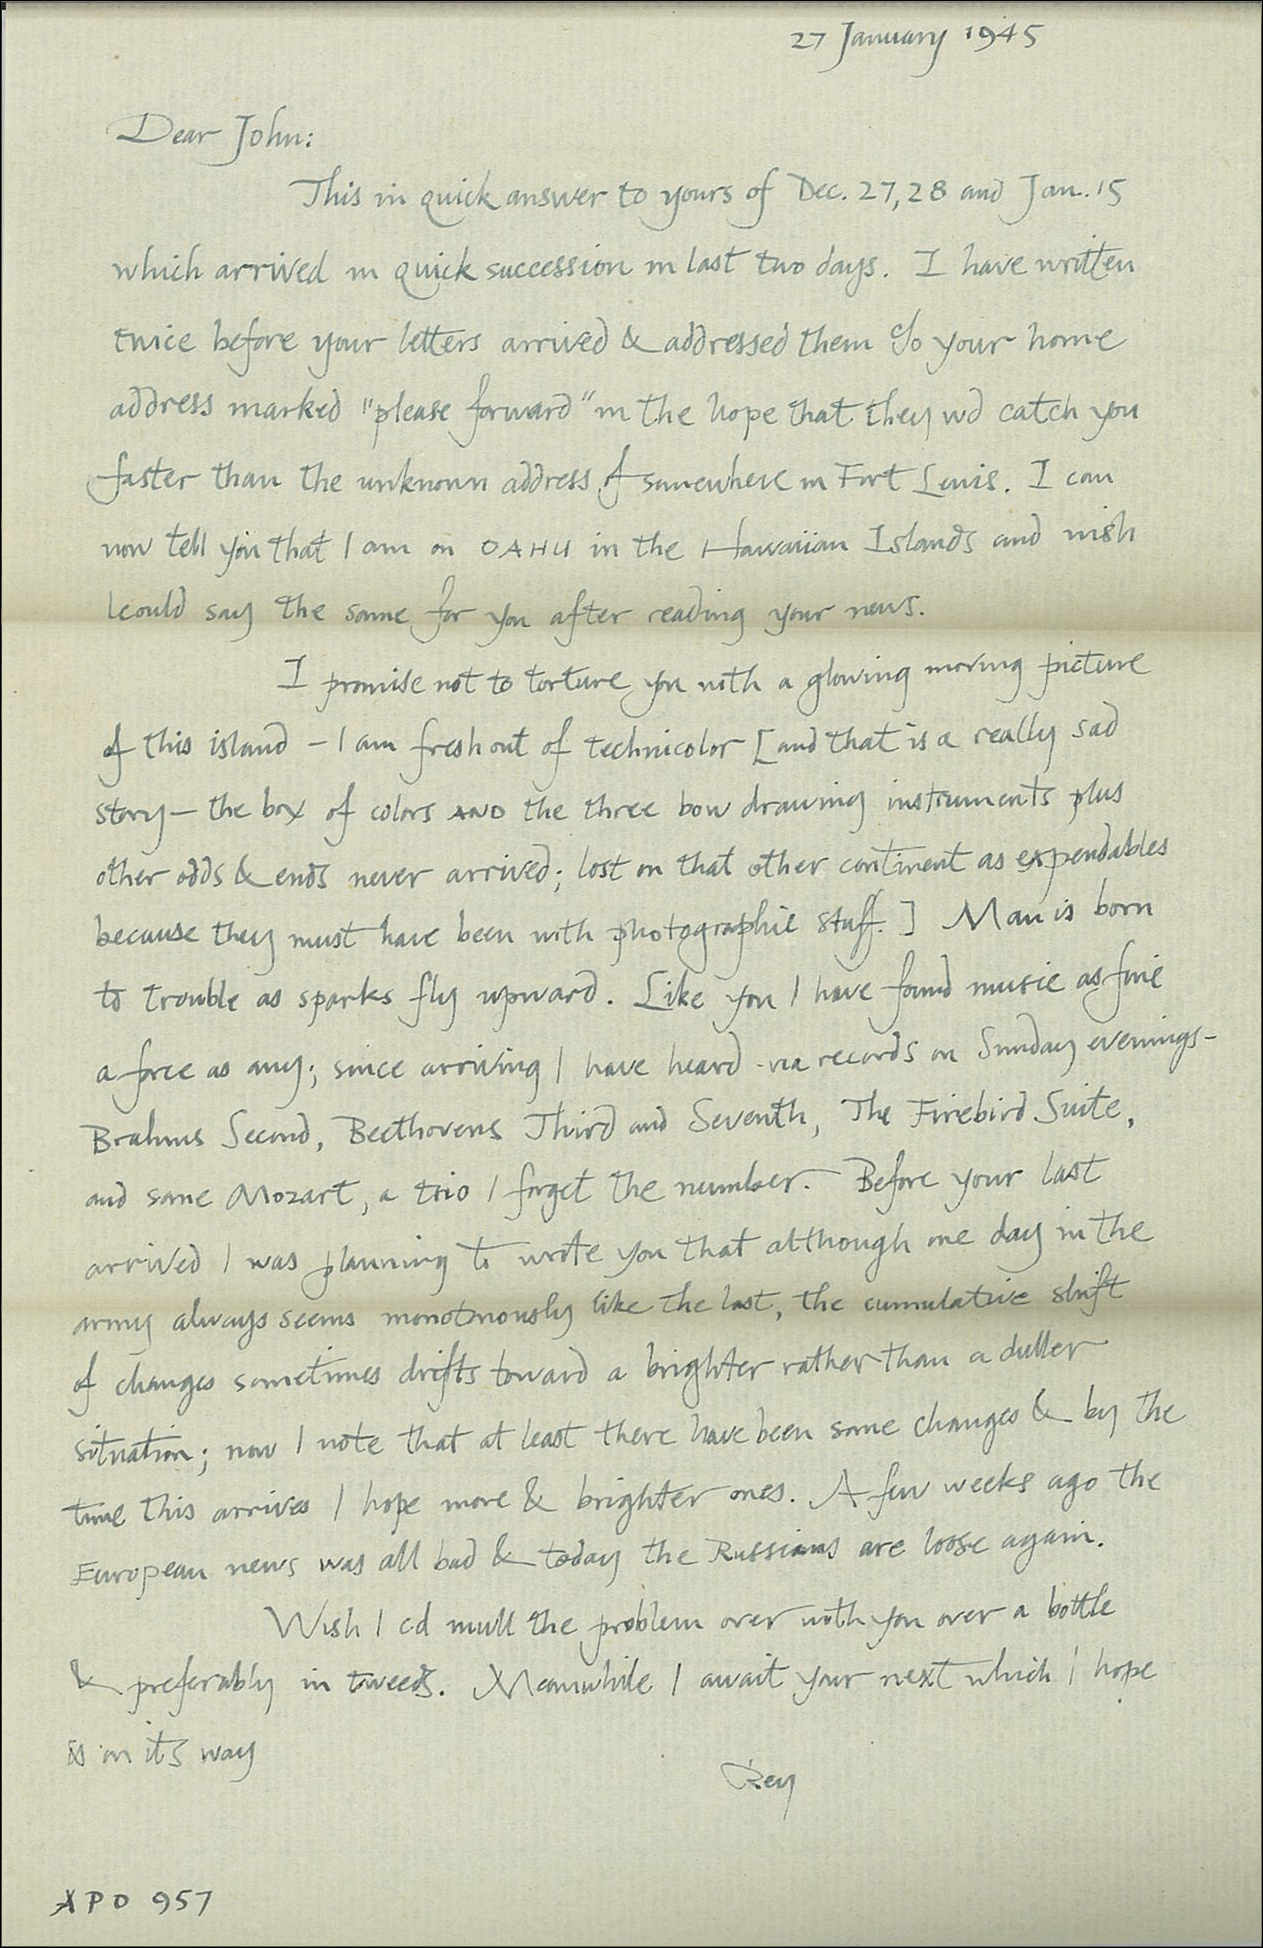 27 January 1945
Dear John:
This in quick answer to yours of Dec. 27, 28 and Jan. 15
which arrived in quick succession in last two days. I have written
twice before your letters arrived & addressed them c/o your home
address marked "please forward" in the hope that they wd catch you
faster than the unknown address of somewhere in Fort Lewis. I can
now tell you that I am on OAHU in the Hawaiian Islands and wish
I could say the same for you after reading your news.
I promise not to torture you with a glowing moving picture
of this island – I am fresh out of technicolor [and that is a really sad
story – the box of colors AND the three bow drawing instruments plus
other odds & ends never arrived; lost on that other continent as expendables
because they must have been with photographic stuff.] Man is born
to trouble as sparks fly upward. Like you I have found music as fine
a force as any; since arriving I have heard - via records on Sunday evenings -
Brahms Second, Beethovens Third and Seventh, The Firebird Suite,
and some Mozart, a trio I forget the number. Before your last
arrived I was planning to write you that although one day in the
army always seems monotonously like the last, the cumulative shift
of changes sometimes drifts toward a brighter rather than a duller
situation; now I note that at least there have been some changes & by the
time this arrives I hope more & brighter ones. A few weeks ago the
European news was all bad & today the Russians are loose again.
Wish I cd mull the problem over with you over a bottle
& preferably in tweeds. Meanwhile I await your next which I hope
is on its way
Rey
APO 957